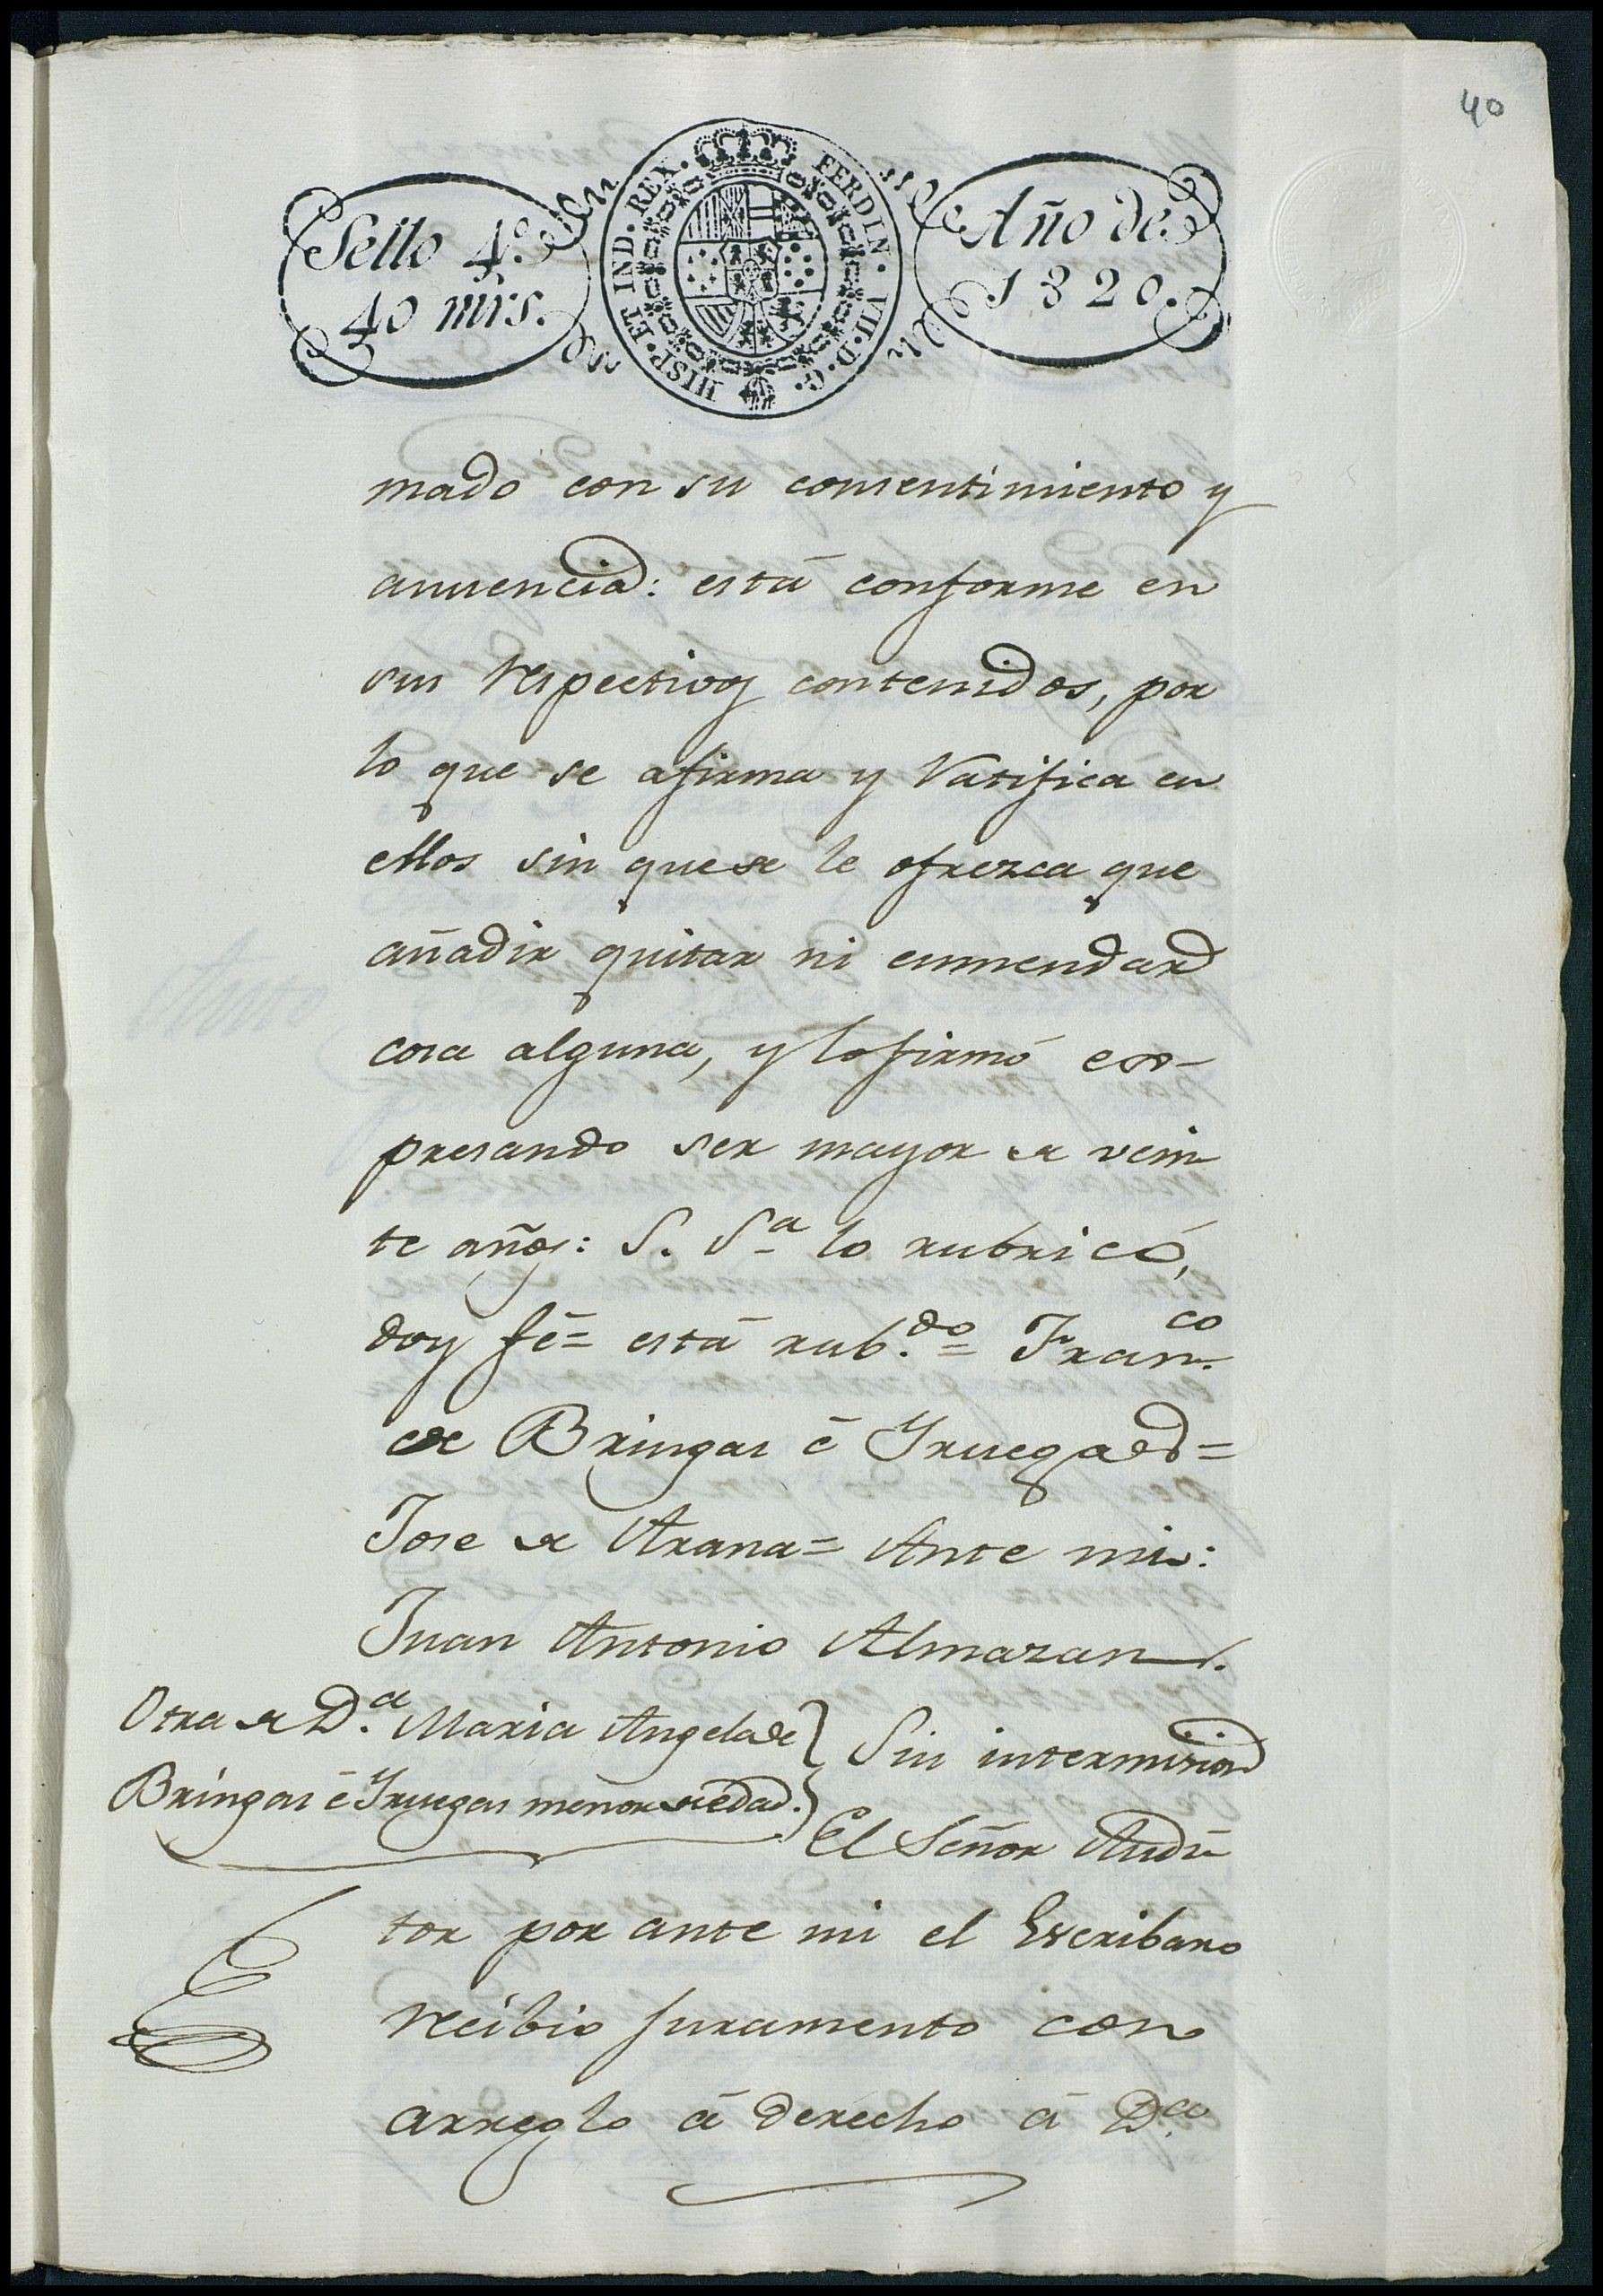 40
Sello 4º
40 mrs.
HISP. ET IND. REX. FERDIN. VII. D. G.
Año de
1820.
mado con su consentimiento y
anuencia: está conforme en
sus respectivos contenidos, por
lo que se afirma y ratifica en
ellos sin que se le ofrezca que
añadir quitar ni enmendar
cosa alguna, y lo firmó ex-
presando ser mayor de vein
te años: S. Sª lo rubricó,
doy fé= está rub.do= Fran.co
de Bringas é Yruegas=
Jose de Arana= Ante mi:
Juan Antonio Almazan.
Otra de D.a Maria Angela de
Bringas é Yruegas menor de edad.
Sin intermision
El Señor Audi-
tor por ante mi el Escribano
recibio juramento con
arreglo á derecho á D.a